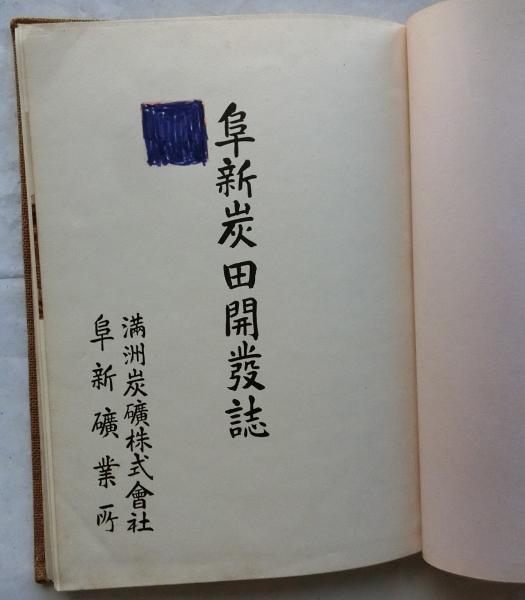 阜新炭田開發誌
満洲炭礦株式會社
阜新礦業所